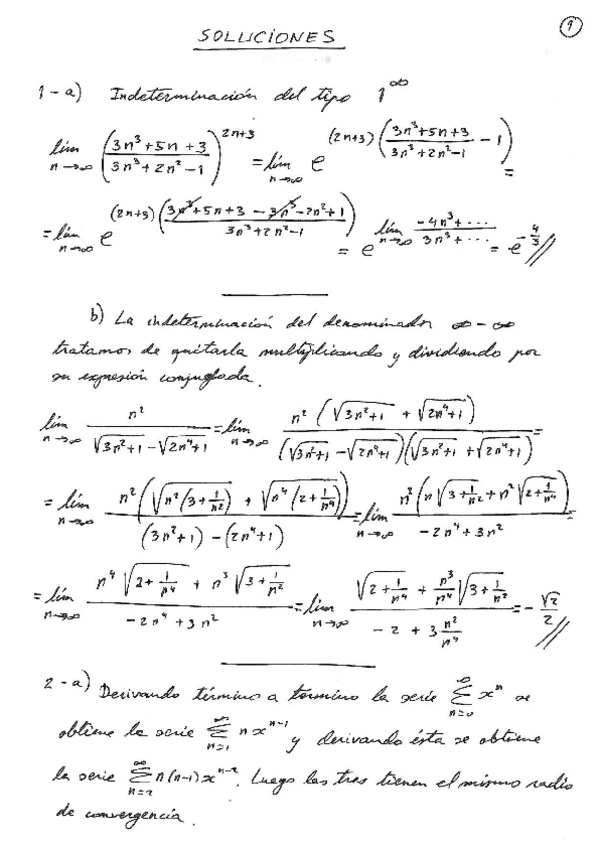 SOLUCIONES
1
1-a) Indeterminación del tipo 1^∞
lím_{n→∞} ((3n³+5n+3)/(3n³+2n²-1))^{2n+3} = lím_{n→∞} e^{(2n+3)((3n³+5n+3)/(3n³+2n²-1) - 1)} =
= lím_{n→∞} e^{(2n+3)((3n³+5n+3-3n³-2n²+1)/(3n³+2n²-1))} = e^{lím_{n→∞} (-4n³+...)/(3n³+...)} = e^{-4/3} //
b) La indeterminación del denominador ∞-∞
tratamos de quitarla multiplicando y dividiendo por
su expresión conjugada.
lím_{n→∞} n²/(√(3n²+1) - √(2n⁴+1)) = lím_{n→∞} n²(√(3n²+1) + √(2n⁴+1))/((√(3n²+1) - √(2n⁴+1))(√(3n²+1) + √(2n⁴+1))) =
= lím_{n→∞} n²(√(n²(3+1/n²)) + √(n⁴(2+1/n⁴)))/((3n²+1)-(2n⁴+1)) = lím_{n→∞} n²(n√(3+1/n²) + n²√(2+1/n⁴))/(-2n⁴+3n²) =
= lím_{n→∞} (n⁴√(2+1/n⁴) + n³√(3+1/n²))/(-2n⁴+3n²) = lím_{n→∞} (√(2+1/n⁴) + n³/n⁴ √(3+1/n²))/(-2+3 n²/n⁴) = -√2/2 //
2-a) Derivando término a termino la serie ∑_{n=0}^∞ xⁿ se
obtiene la serie ∑_{n=1}^∞ nx^{n-1} y derivando ésta se obtiene
la serie ∑_{n=2}^∞ n(n-1)x^{n-2}. Luego las tres tienen el mismo radio
de convergencia.